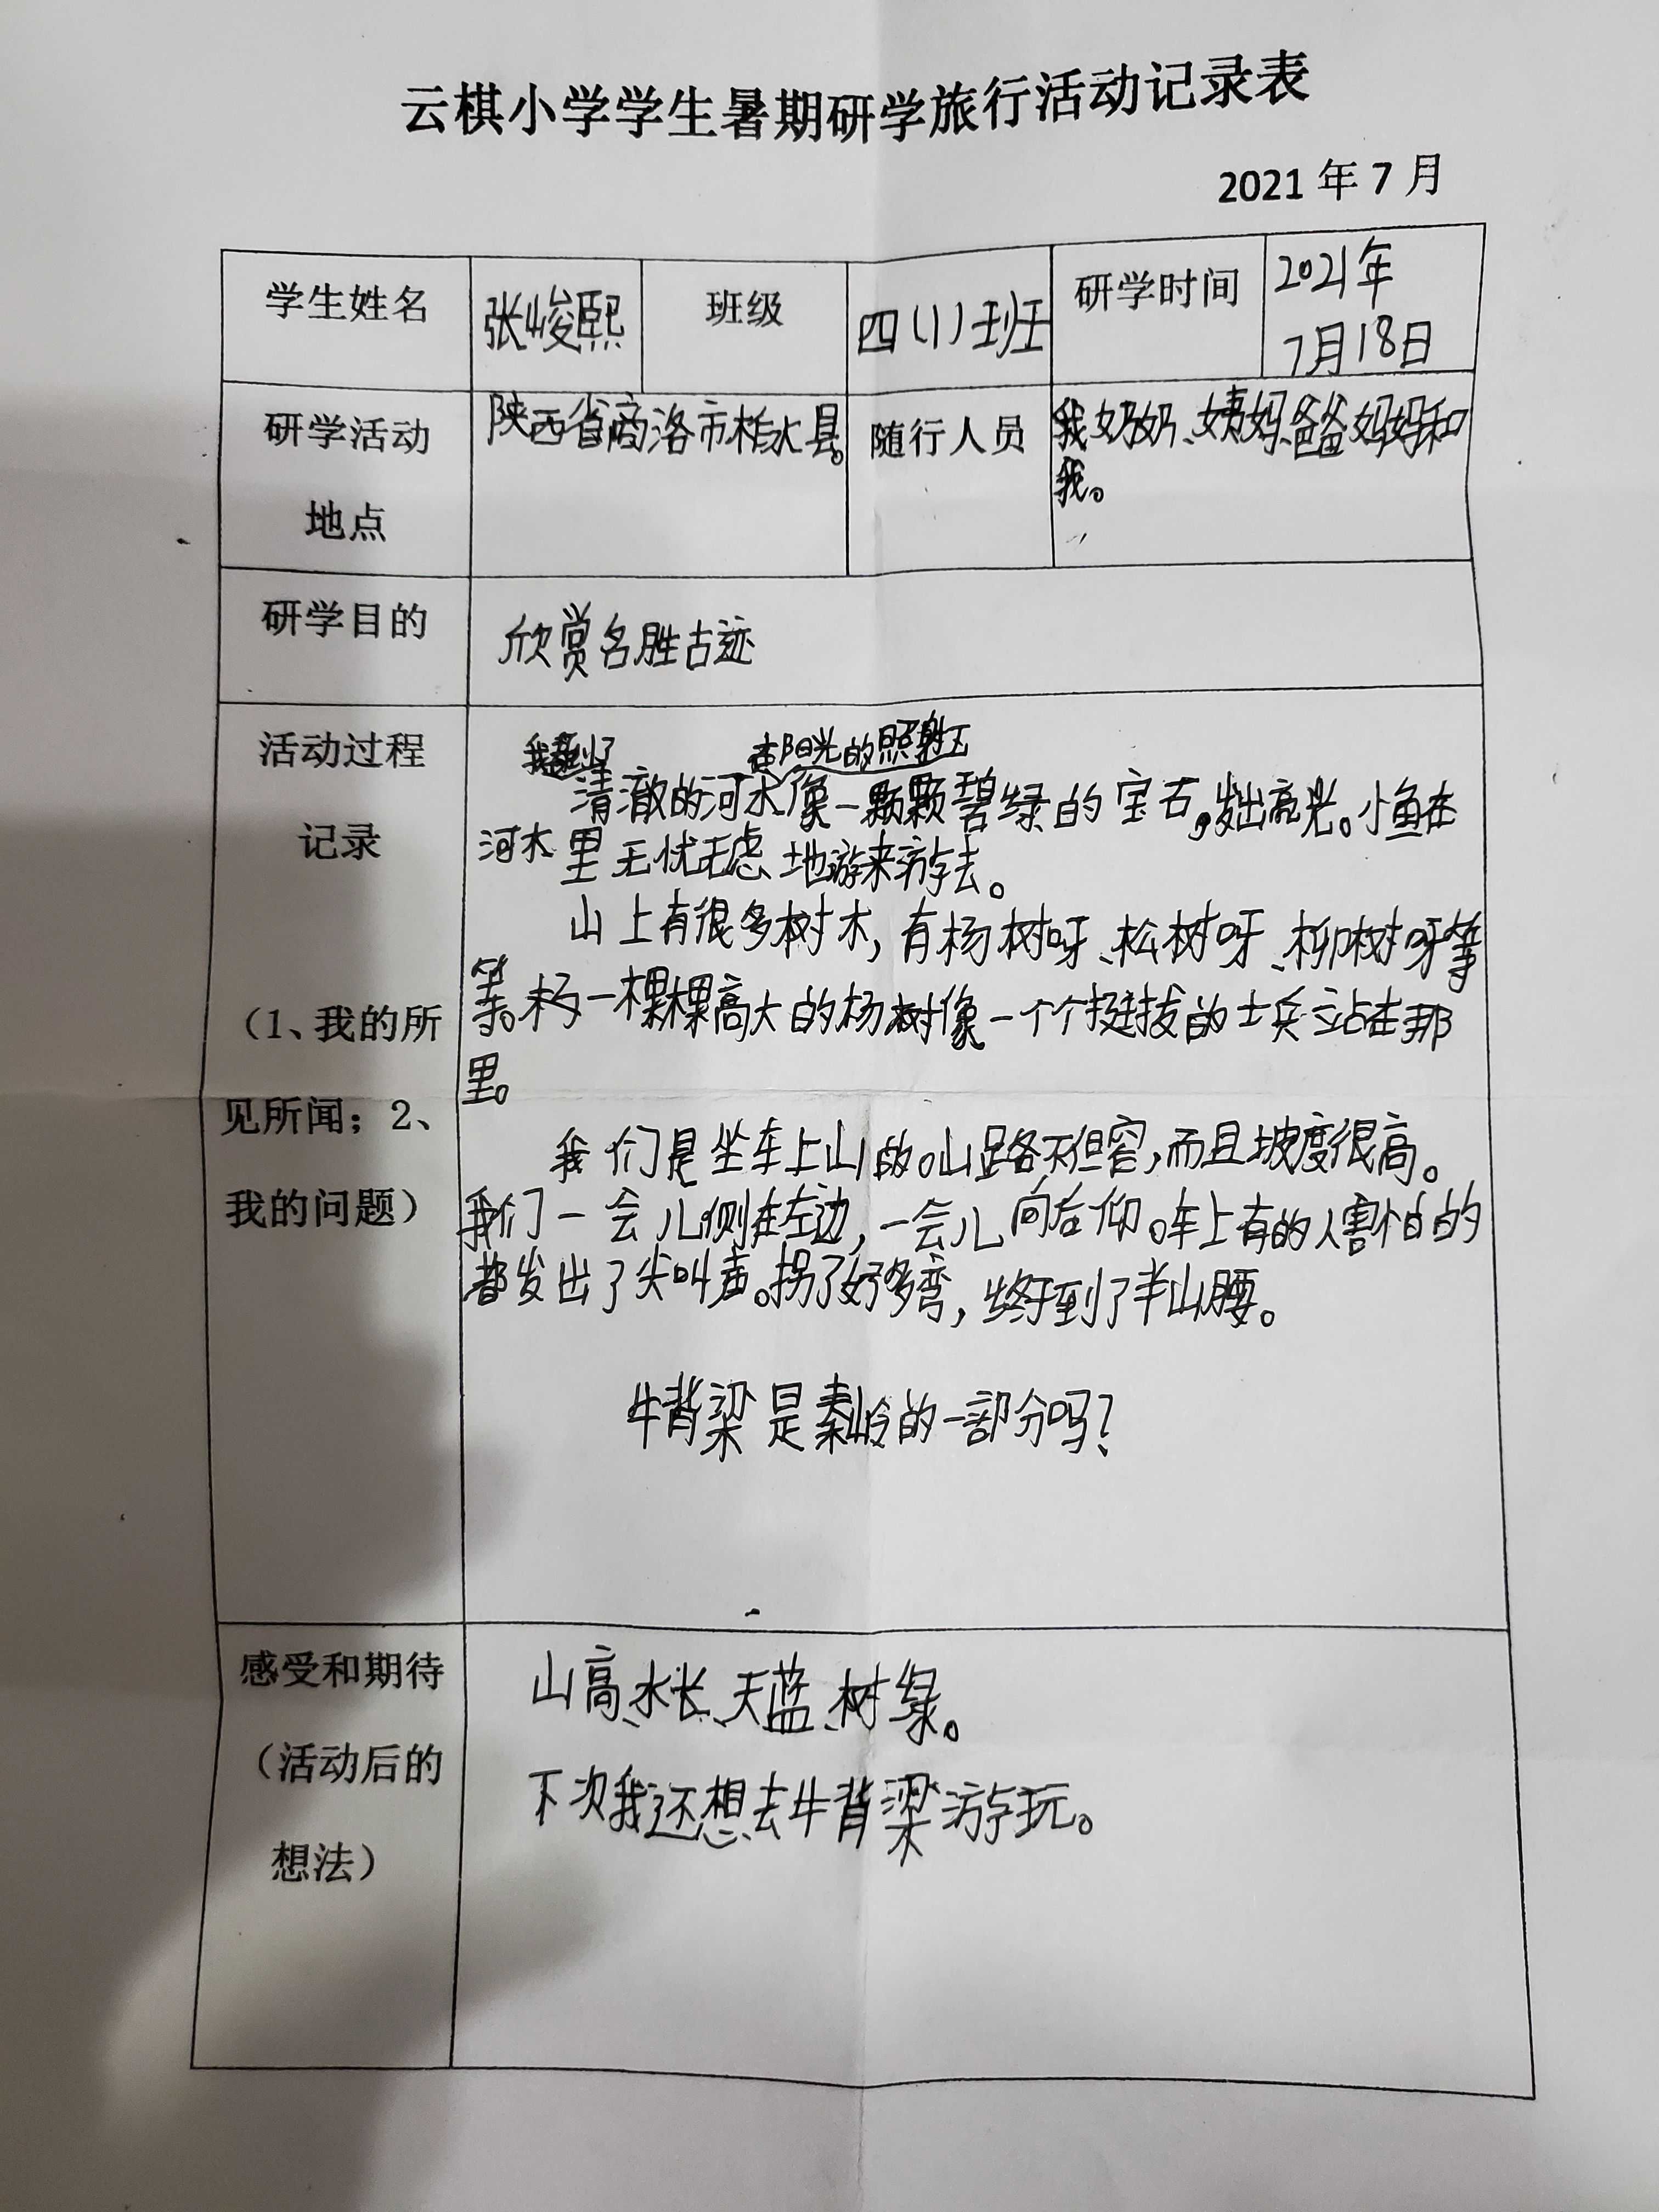 云棋小学学生暑期研学旅行活动记录表
2021年7月
学生姓名
张峻熙
班级
四(1)班
研学时间
2021年
7月18日
研学活动
地点
陕西省商洛市柞水县。
随行人员
我奶奶、姨妈、爸爸妈妈和
我。
研学目的
欣赏名胜古迹
活动过程
记录
（1、我的所
见所闻；2、
我的问题）
我看到了
在阳光的照射下
清澈的河水像一颗颗碧绿的宝石,发出亮光。小鱼在
河水里无忧无虑地游来游去。
山上有很多树木,有杨树呀、松树呀、柳树呀等
等。一棵棵高大的杨树像一个个挺拔的士兵站在那
里。
我们是坐车上山的。山路不但窄,而且坡度很高。
我们一会儿侧在左边,一会儿向后仰。车上有的人害怕的
都发出了尖叫声。拐了好多弯,终于到了半山腰。
牛背梁是秦岭的一部分吗?
感受和期待
（活动后的
想法）
山高、水长、天蓝、树绿。
下次我还想去牛背梁游玩。